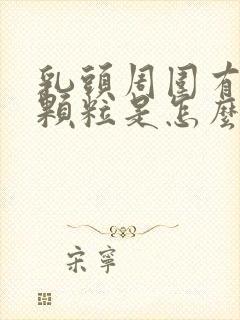 乳頭周围有
顆粒是怎麼
宋寧